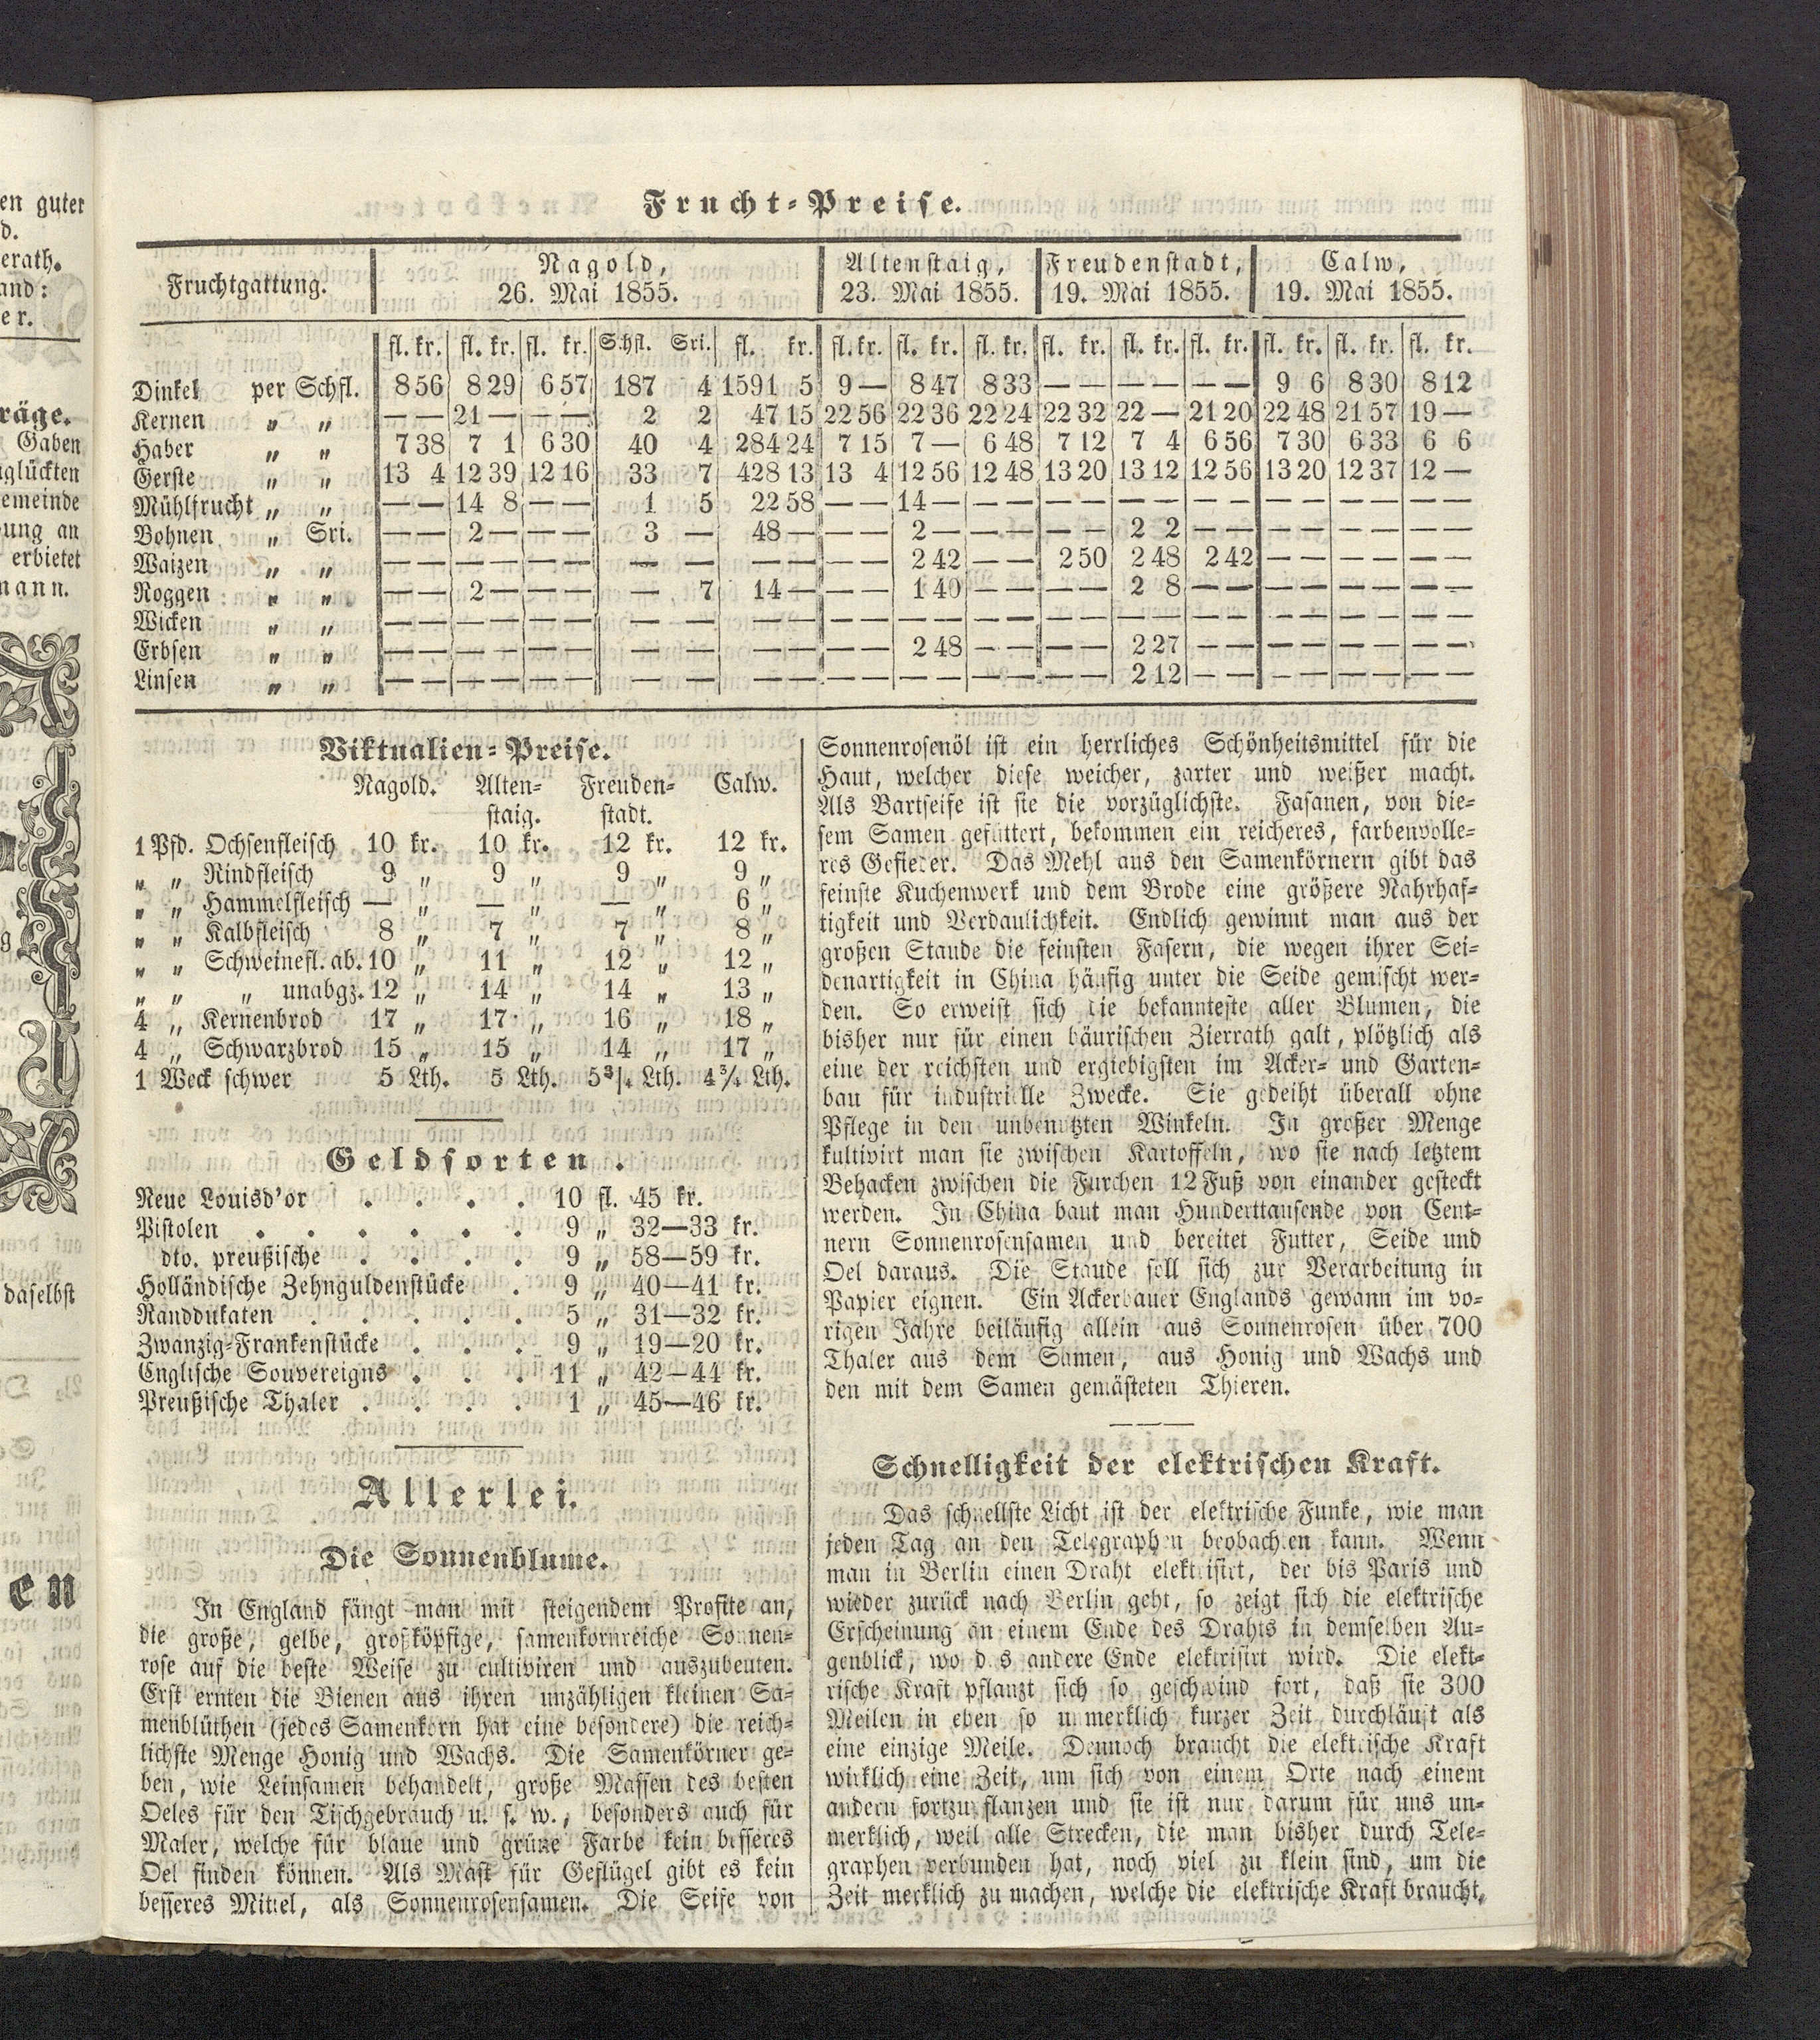 en guter
d.
erath.
and:
er.
räge.
Gaben
glückten
emeinde
ung an
erbietet
mann.
daselbst
en
Frucht-Preise.
Fruchtgattung. Nagold, 26. Mai 1855. Altenstaig, 23. Mai 1855. Freudenstadt, 19. Mai 1855. Calw, 19. Mai 1855.
fl. kr. fl. kr. fl. kr. Schfl. Sri. fl. kr. fl. kr. fl. kr. fl. kr. fl. kr. fl. kr. fl. kr. fl. kr. fl. kr. fl. kr.
Dinkel per Schfl. 8 56 8 29 6 57 187 4 1591 5 9 — 8 47 8 33 — — — — — — 9 6 8 30 8 12
Kernen „ „ — — 21 — — — 2 2 47 15 22 56 22 36 22 24 22 32 22 — 21 20 22 48 21 57 19 —
Haber „ „ 7 38 7 1 6 30 40 4 284 24 7 15 7 — 6 48 7 12 7 4 6 56 7 30 6 33 6 6
Gerste „ „ 13 4 12 39 12 16 33 7 428 13 13 4 12 56 12 48 13 20 13 12 12 56 13 20 12 37 12 —
Mühlfrucht „ „ — — 14 8 — — 1 5 22 58 — — 14 — — — — — — — — — — — — — — —
Bohnen „ Sri. — — 2 — — — 3 — 48 — — — 2 — — — — — 2 2 — — — — — — — —
Waizen „ „ — — — — — — — — — — — — 2 42 — — 2 50 2 48 2 42 — — — — — —
Roggen „ „ — — 2 — — — — 7 14 — — — 1 40 — — — — 2 8 — — — — — — — —
Wicken „ „ — — — — — — — — — — — — — — — — — — — — — — — — — — — —
Erbsen „ „ — — — — — — — — — — — — 2 48 — — — — 2 27 — — — — — — — —
Linsen „ „ — — — — — — — — — — — — — — — — — — 2 12 — — — — — — — —
Viktualien-Preise.
Nagold. Alten- Freuden- Calw.
staig. stadt.
1 Pfd. Ochsenfleisch 10 kr. 10 kr. 12 kr. 12 kr.
„ „ Rindfleisch 9 „ 9 „ 9 „ 9 „
„ „ Hammelfleisch — „ — „ — „ 6 „
„ „ Kalbfleisch 8 „ 7 „ 7 „ 8 „
„ „ Schweinefl. ab. 10 „ 11 „ 12 „ 12 „
„ „ „ unabgz. 12 „ 14 „ 14 „ 13 „
4 „ Kernenbrod 17 „ 17 „ 16 „ 18 „
4 „ Schwarzbrod 15 „ 15 „ 14 „ 17 „
1 Weck schwer 5 Lth. 5 Lth. 5¾ Lth. 4¾ Lth.
Geldsorten.
Neue Louisd'or . . . . 10 fl. 45 kr.
Pistolen . . . . . . 9 „ 32—33 kr.
dto. preußische . . . . 9 „ 58—59 kr.
Holländische Zehnguldenstücke . 9 „ 40—41 kr.
Randdukaten . . . . . 5 „ 31—32 kr.
Zwanzig-Frankenstücke . . . 9 „ 19—20 kr.
Englische Souvereigns . . . 11 „ 42—44 kr.
Preußische Thaler . . . . 1 „ 45—46 kr.
Allerlei.
Die Sonnenblume.
In England fängt man mit steigendem Profite an,
die große, gelbe, großköpfige, samenkornreiche Sonnen-
rose auf die beste Weise zu cultiviren und auszubeuten.
Erst ernten die Bienen aus ihren unzähligen kleinen Sa-
menblüthen (jedes Samenkorn hat eine besondere) die reich-
lichste Menge Honig und Wachs. Die Samenkörner ge-
ben, wie Leinsamen behandelt, große Massen des besten
Oeles für den Tischgebrauch u. s. w., besonders auch für
Maler, welche für blaue und grüne Farbe kein besseres
Oel finden können. Als Mast für Geflügel gibt es kein
besseres Mittel, als Sonnenrosensamen. Die Seife von
Sonnenrosenöl ist ein herrliches Schönheitsmittel für die
Haut, welcher diese weicher, zarter und weißer macht.
Als Bartseife ist sie die vorzüglichste. Fasanen, von die-
sem Samen gefüttert, bekommen ein reicheres, farbenvolle-
res Gefieder. Das Mehl aus den Samenkörnern gibt das
feinste Kuchenwerk und dem Brode eine größere Nahrhaf-
tigkeit und Verdaulichkeit. Endlich gewinnt man aus der
großen Staude die feinsten Fasern, die wegen ihrer Sei-
denartigkeit in China häufig unter die Seide gemischt wer-
den. So erweist sich die bekannteste aller Blumen, die
bisher nur für einen bäurischen Zierrath galt, plötzlich als
eine der reichsten und ergiebigsten im Acker- und Garten-
bau für industrielle Zwecke. Sie gedeiht überall ohne
Pflege in den unbenutzten Winkeln. In großer Menge
kultivirt man sie zwischen Kartoffeln, wo sie nach letztem
Behacken zwischen die Furchen 12 Fuß von einander gesteckt
werden. In China baut man Hunderttausende von Cent-
nern Sonnenrosensamen und bereitet Futter, Seide und
Oel daraus. Die Staude soll sich zur Verarbeitung in
Papier eignen. Ein Ackerbauer Englands gewann im vo-
rigen Jahre beiläufig allein aus Sonnenrosen über 700
Thaler aus dem Samen, aus Honig und Wachs und
den mit dem Samen gemästeten Thieren.
Schnelligkeit der elektrischen Kraft.
Das schnellste Licht ist der elektrische Funke, wie man
jeden Tag an den Telegraphen beobachten kann. Wenn
man in Berlin einen Draht elektrisirt, der bis Paris und
wieder zurück nach Berlin geht, so zeigt sich die elektrische
Erscheinung an einem Ende des Drahts in demselben Au-
genblick, wo das andere Ende elektrisirt wird. Die elekt-
rische Kraft pflanzt sich so geschwind fort, daß sie 300
Meilen in eben so unmerklich kurzer Zeit durchläuft als
eine einzige Meile. Dennoch braucht die elektrische Kraft
wirklich eine Zeit, um sich von einem Orte nach einem
andern fortzupflanzen und sie ist nur darum für uns un-
merklich, weil alle Strecken, die man bisher durch Tele-
graphen verbunden hat, noch viel zu klein sind, um die
Zeit merklich zu machen, welche die elektrische Kraft braucht,